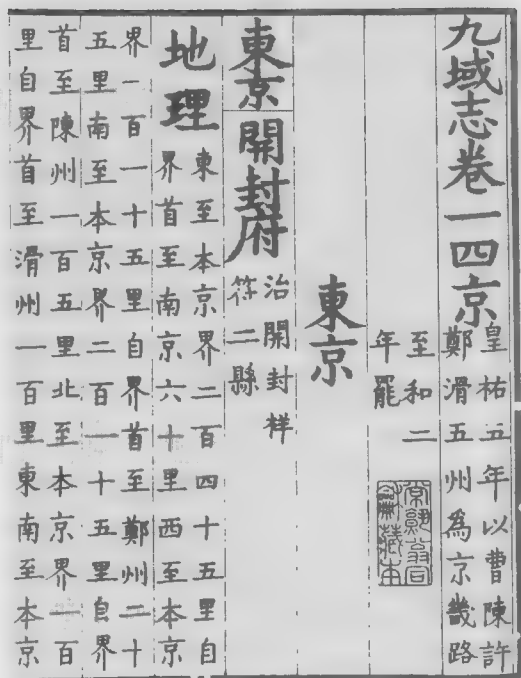 九域志卷一四京
皇祐五年以曹陳許
鄭滑五州為京畿路
至和二
年罷
常熟翁同
龢藏本
東京
東京開封府
治開封祥
符二縣
地理
東至本京界二百四十五里自
界首至南京六十里西至本京
界一百一十五里自界首至鄭州二十
五里南至本京界二百一十五里自界
首至陳州一百五里北至本京界一百
里自界首至滑州一百里東南至本京